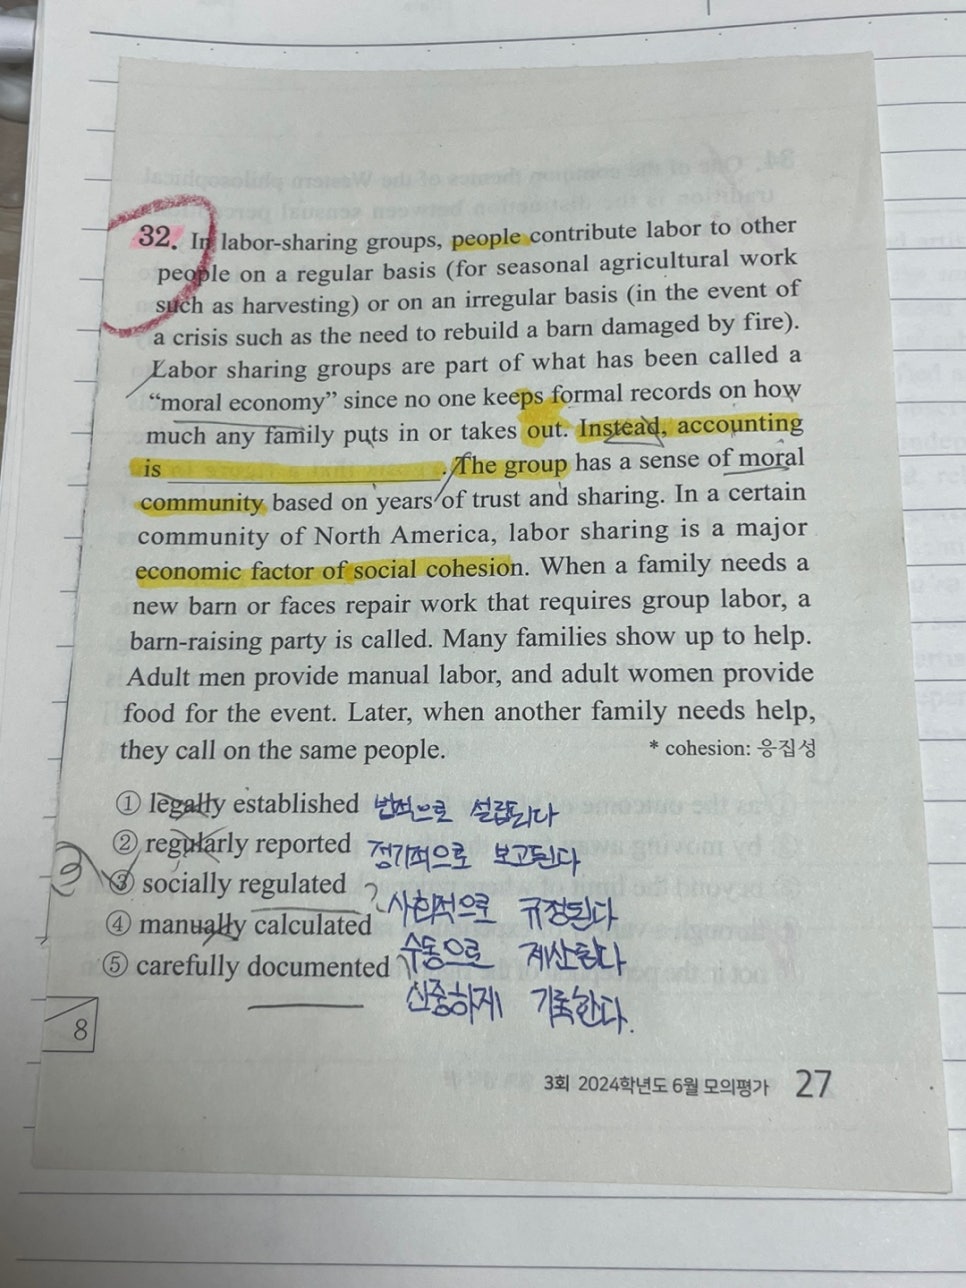 32. In labor-sharing groups, people contribute labor to other
people on a regular basis (for seasonal agricultural work
such as harvesting) or on an irregular basis (in the event of
a crisis such as the need to rebuild a barn damaged by fire).
Labor sharing groups are part of what has been called a
“moral economy” since no one keeps formal records on how
much any family puts in or takes out. Instead, accounting
is ____________. The group has a sense of moral
community based on years of trust and sharing. In a certain
community of North America, labor sharing is a major
economic factor of social cohesion. When a family needs a
new barn or faces repair work that requires group labor, a
barn-raising party is called. Many families show up to help.
Adult men provide manual labor, and adult women provide
food for the event. Later, when another family needs help,
they call on the same people. * cohesion: 응집성
① legally established 법적으로 설립되다
② regularly reported 정기적으로 보고된다
③ socially regulated ? 사회적으로 규정된다
④ manually calculated 수동으로 계산된다
⑤ carefully documented 신중하게 기록한다.
8
3회 2024학년도 6월 모의평가 27